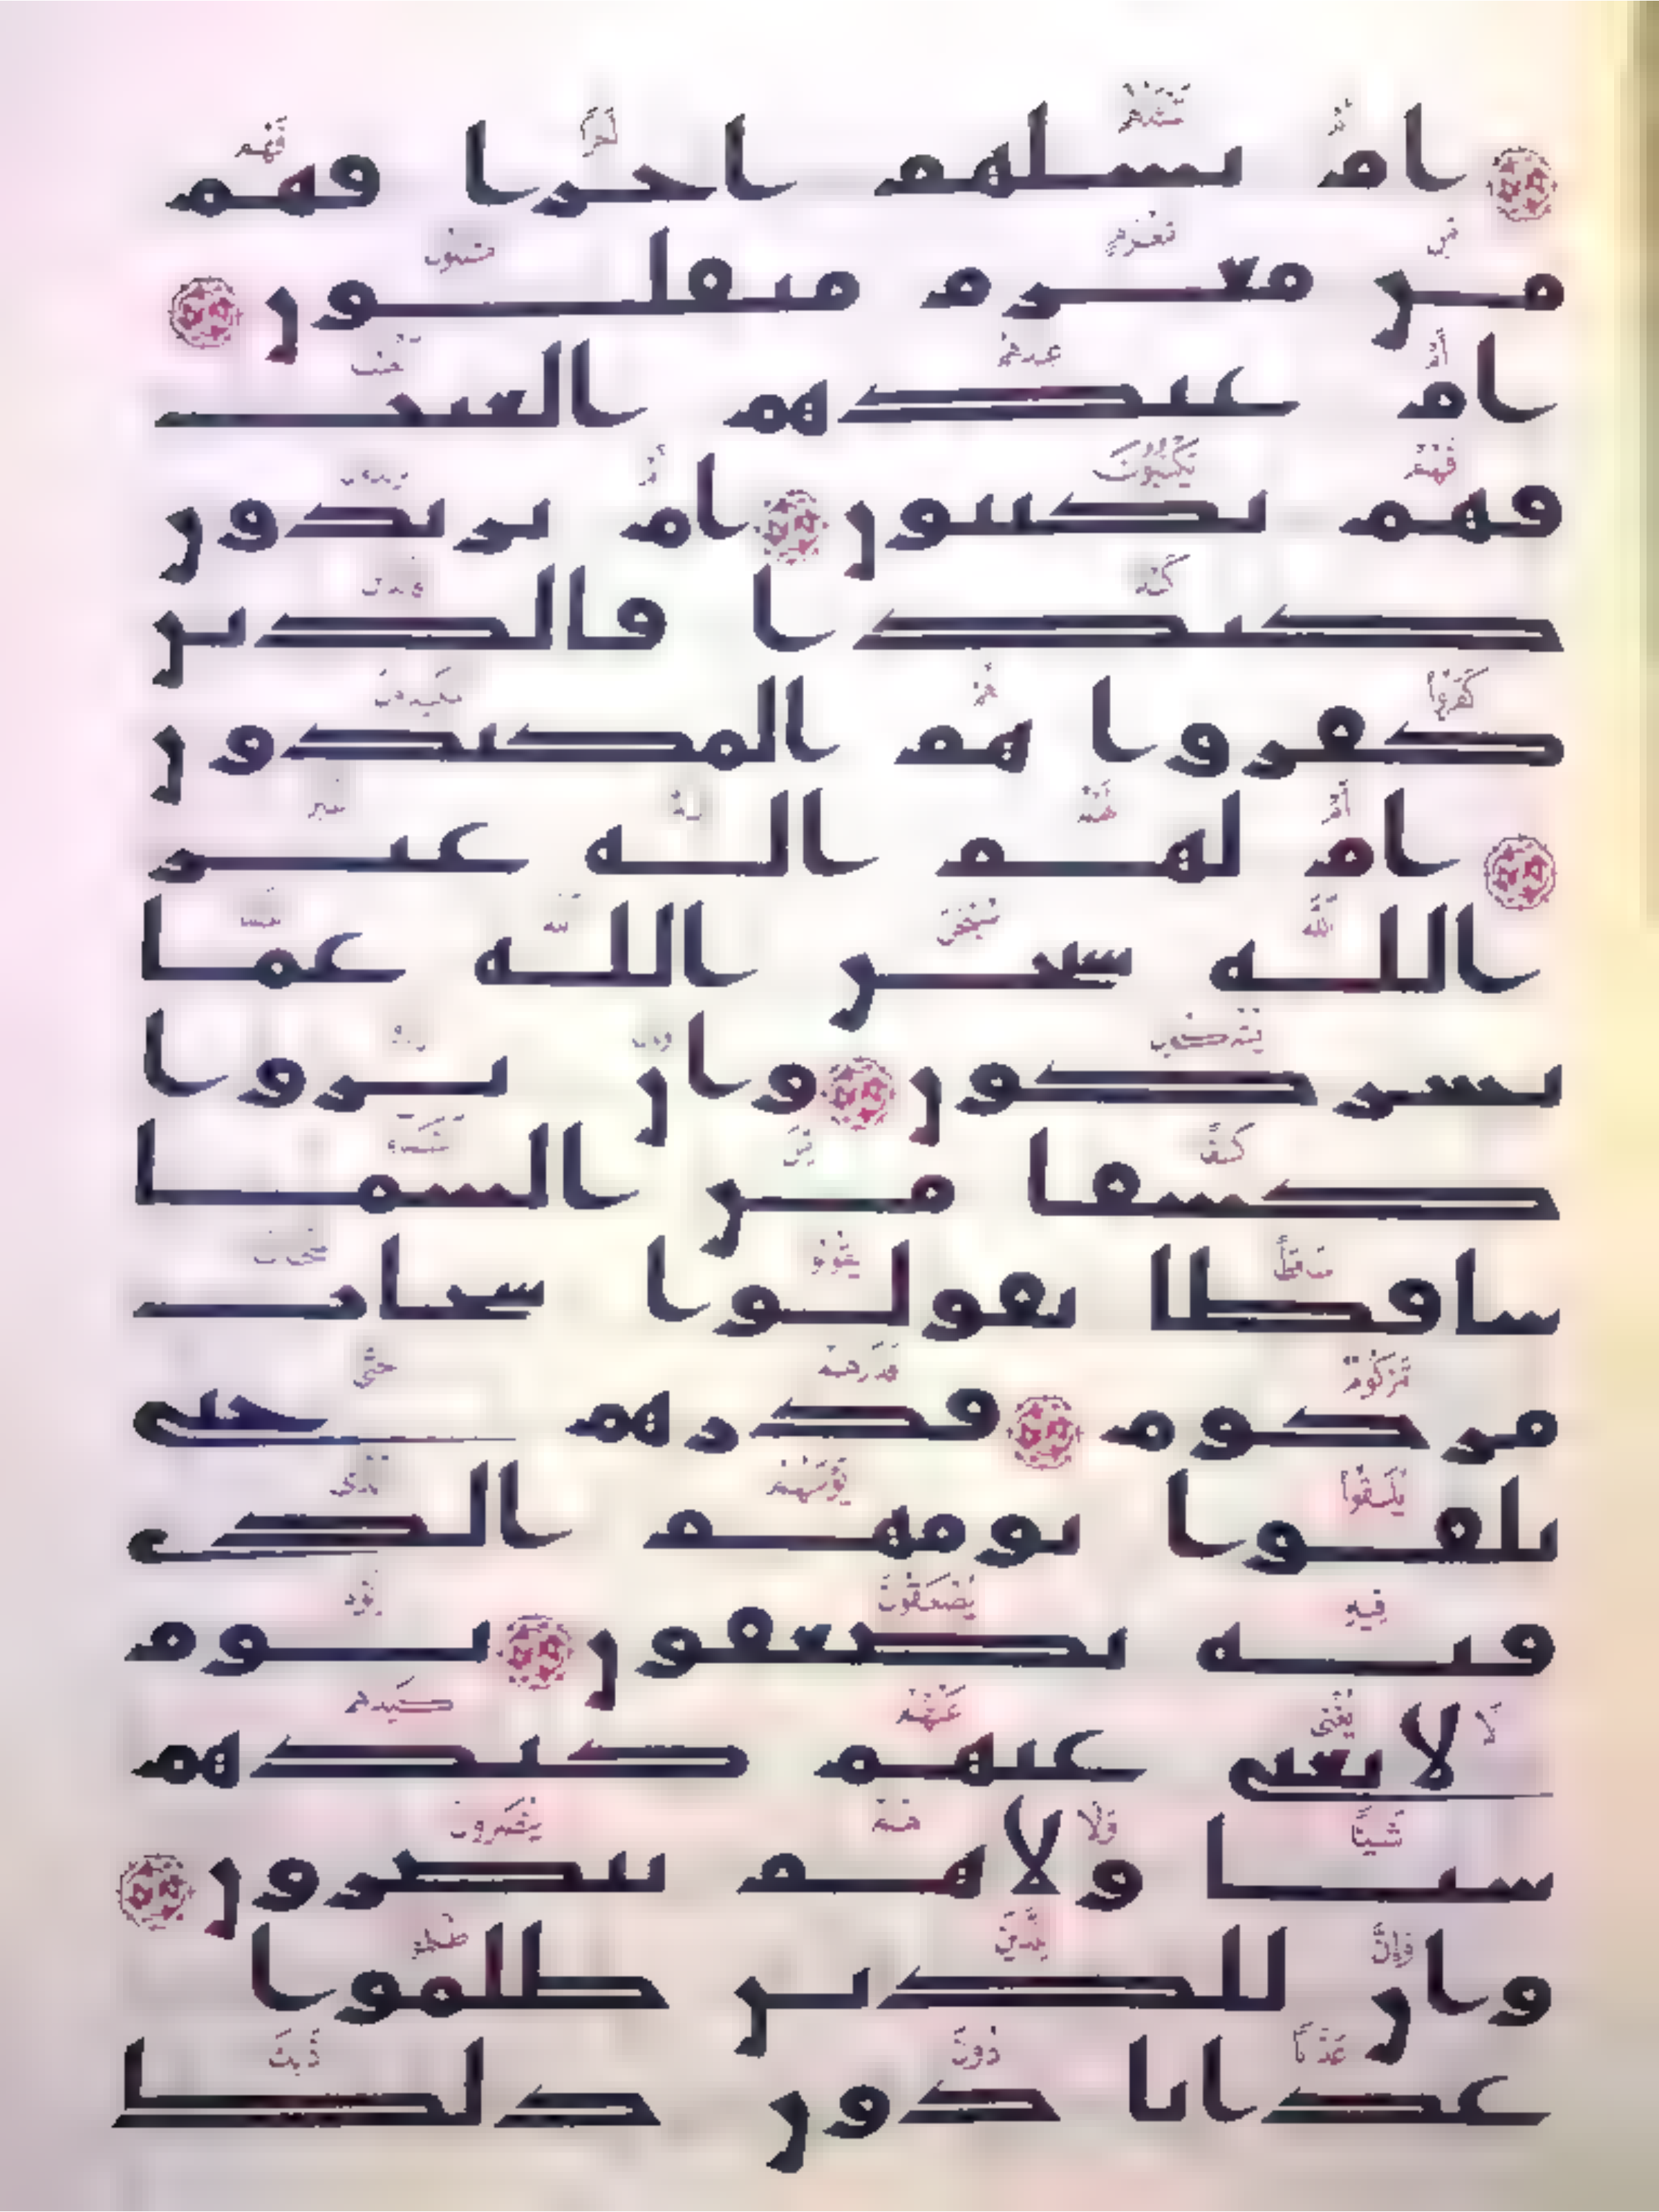 ام تسلهم اجرا فهم
من مغرم مثقلون
ام عندهم الغيب
فهم يكتبون ام يريدون
كيدا فالذين
كفروا هم المكيدون
ام لهم اله غير
الله سبحن الله عما
يشركون وان يروا
كسفا من السما
ساقطا يقولوا سحاب
مركوم فذرهم حتى
يلقوا يومهم الذى
فيه يصعقون يوم
لا يغنى عنهم كيدهم
شيا ولا هم ينصرون
وان للذين ظلموا
عذابا دون ذلك